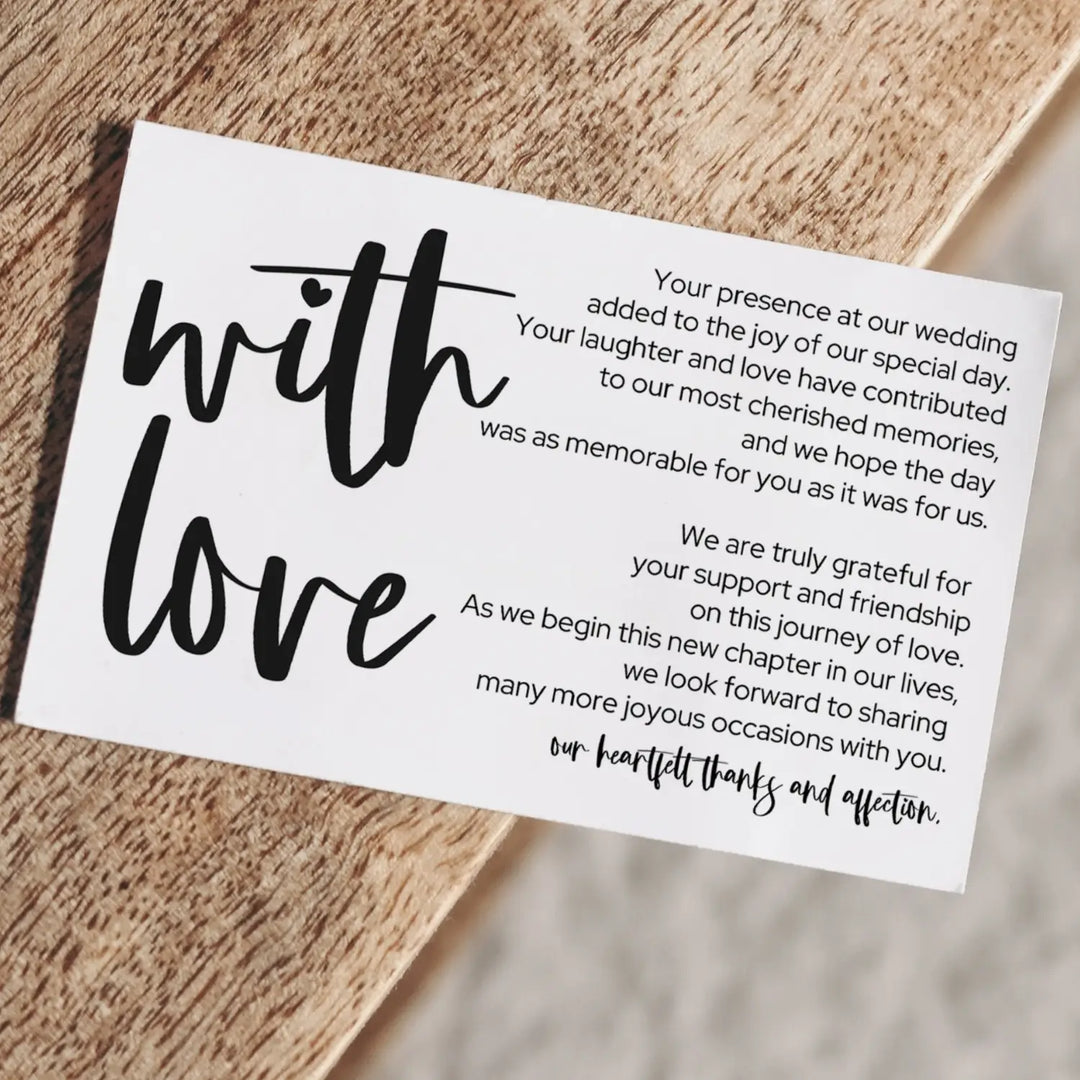 with
love
Your presence at our wedding
added to the joy of our special day.
Your laughter and love have contributed
to our most cherished memories,
and we hope the day
was as memorable for you as it was for us.
We are truly grateful for
your support and friendship
on this journey of love.
As we begin this new chapter in our lives,
we look forward to sharing
many more joyous occasions with you.
our heartfelt thanks and affection,